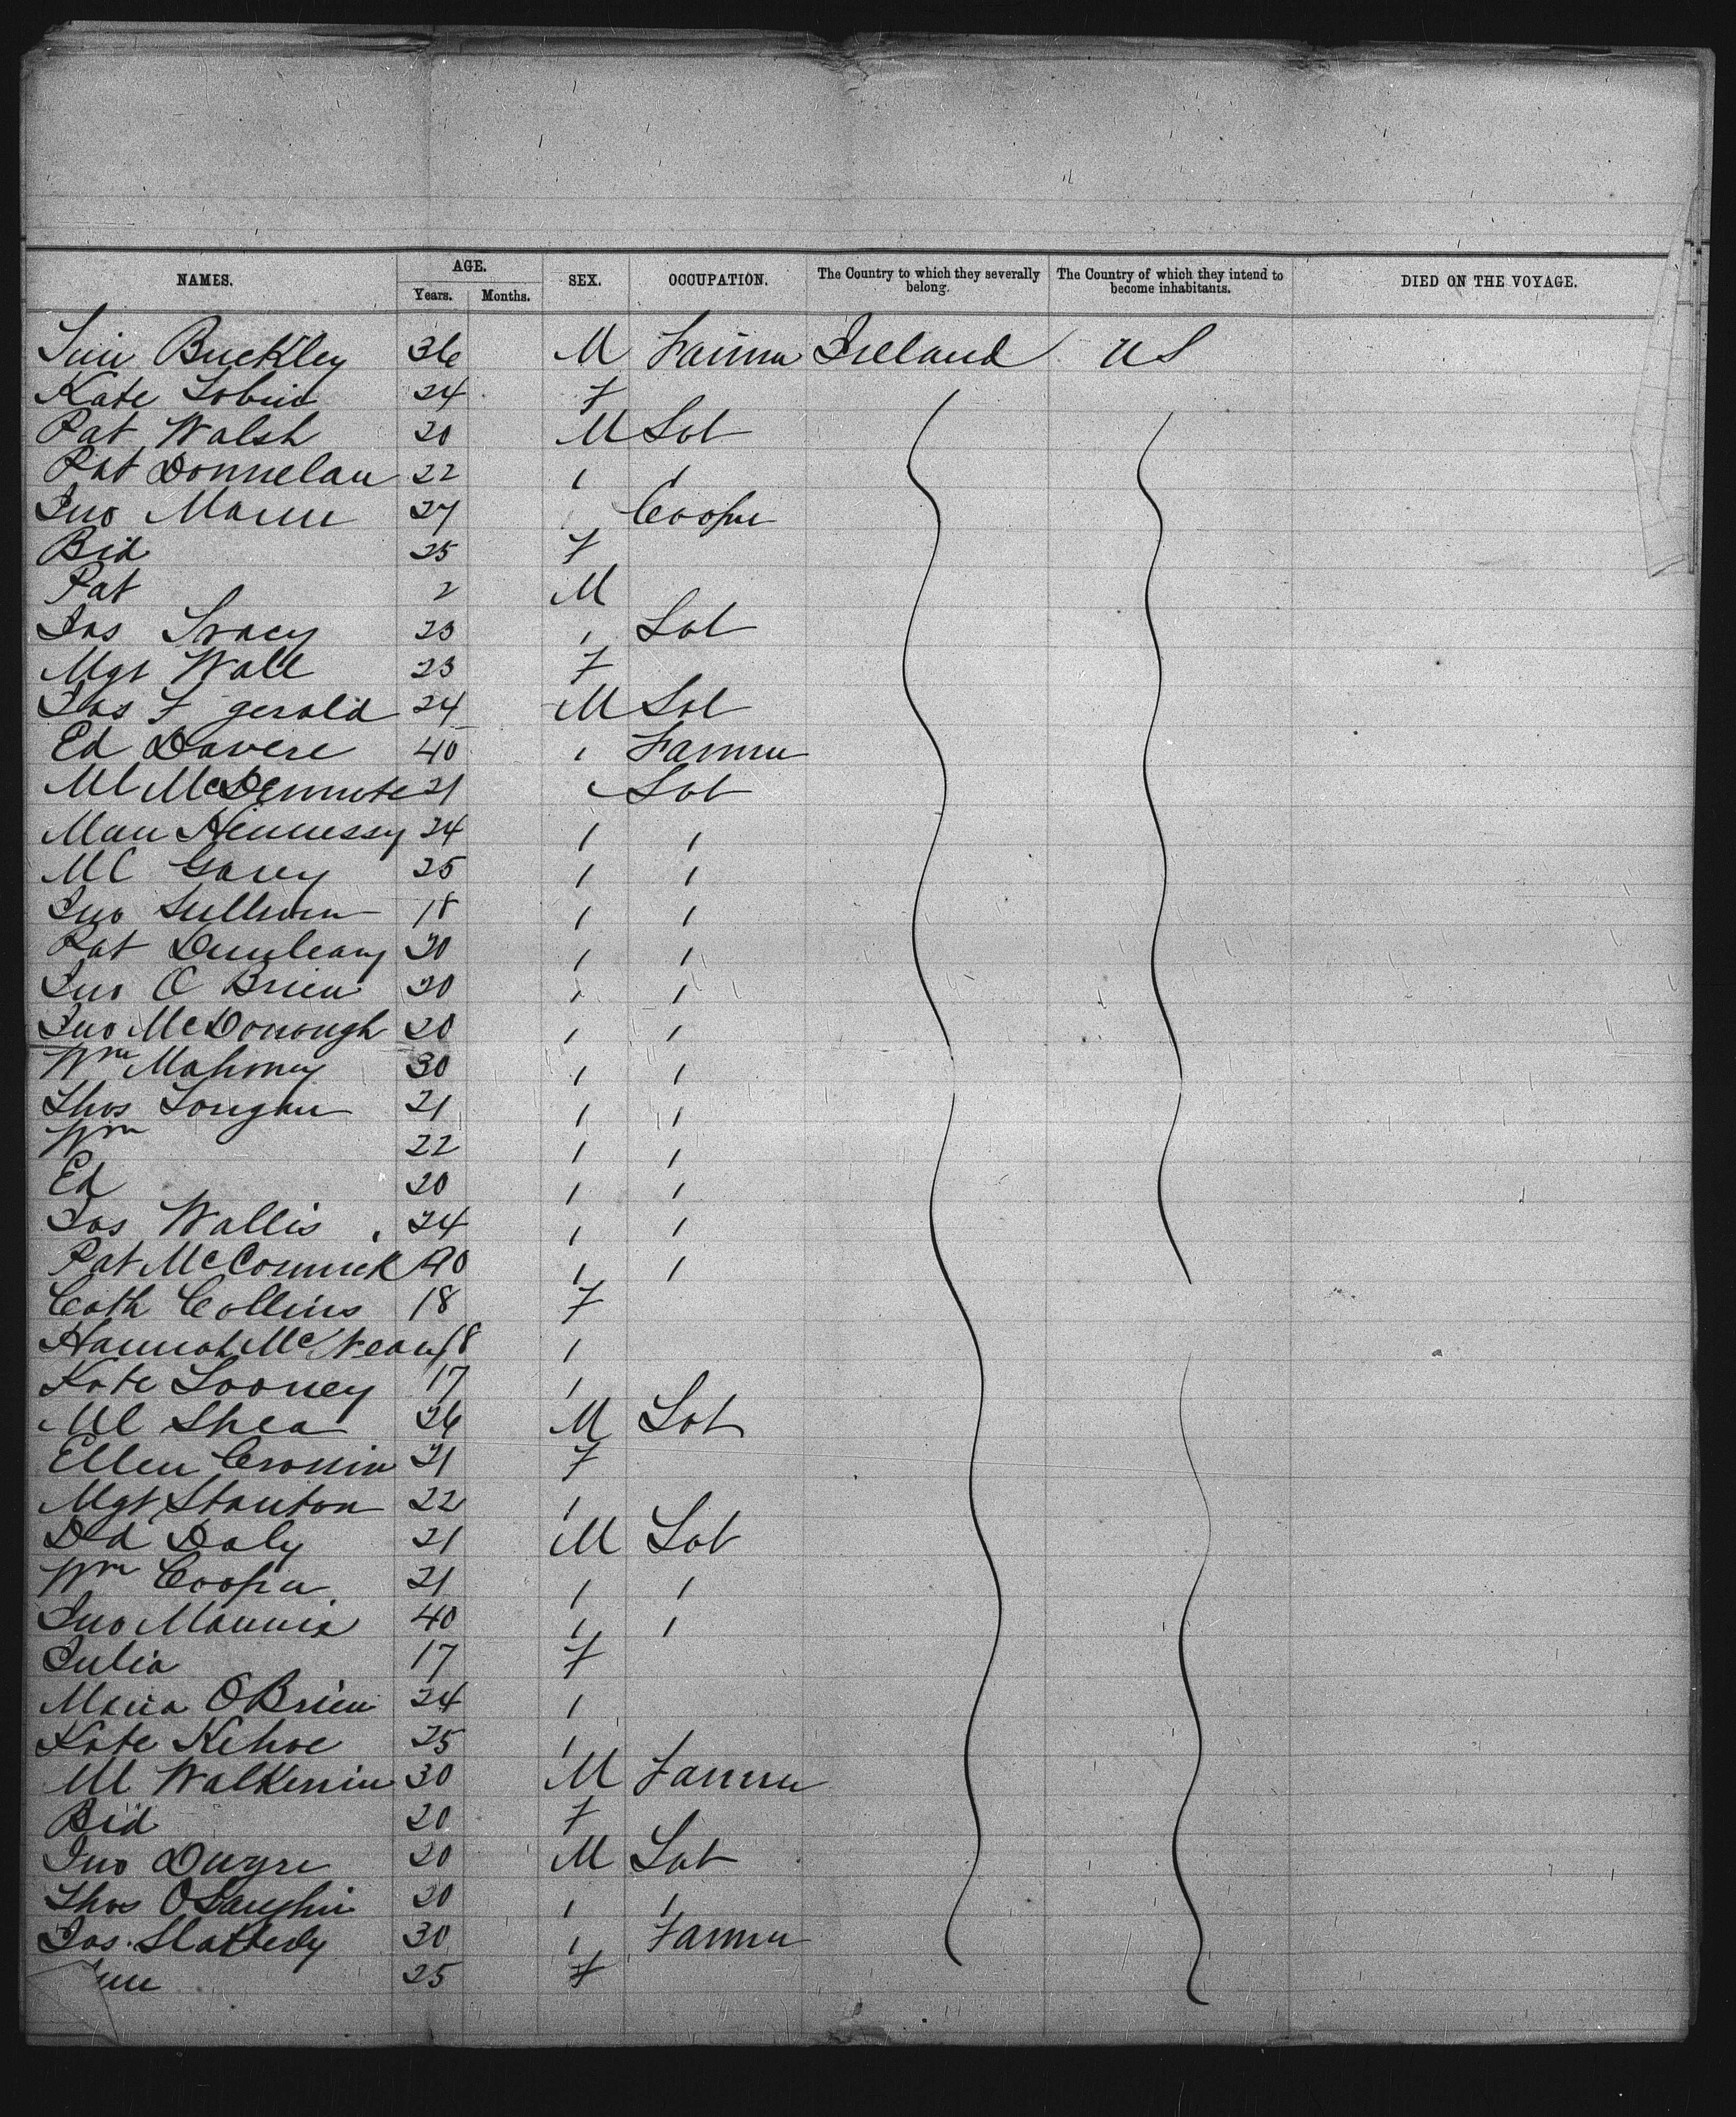 NAMES. AGE. SEX. OCCUPATION. The Country to which they severally belong. The Country of which they intend to become inhabitants. DIED ON THE VOYAGE.
Years. Months.
Tim Buckley 36 M Farmer Ireland US
Kate Tobin 24 F
Pat Walsh 20 M Lab
Pat Donnelan 22 " "
Jno Mann 27 Cooper
Bid 25 F
Pat 2 M
Jas Tracy 23 " Lab
Mgt Wall 23 F
Jas F gerald 24 M Lab
Ed Davere 40 " Farmer
Ml McDermott 21 " Lab
Hennessy 24 " "
Ml Garvey 25 " "
Jno Sullivan 18 " "
Pat Dunleavy 20 " "
Jno O Brien 20 " "
Jno McDonough 20 " "
Wm Mahoney 30 " "
Thos Longan 21 " "
Wm 22 " "
Ed 20 " "
Jas Wallis 24 " "
Pat McCormick 40 " "
Cath Collins 18 F
Hannah 18 "
Kate Looney 17 "
Ml Shea 26 M Lab
Ellen Cronin 21 F
Mgt Stanton 22 "
Dd Daly 21 M Lab
Wm Cooper 21 " "
Jno Mannix 40 " "
Julia 17 F
Maria OBrien 24 "
Kate Kehoe 25 "
Ml 30 M Farmer
Bid 20 F
Jno Dwyre 20 M Lab
Thos OLaughlin 20 " "
Jas. Slattery 30 " Farmer
25 F